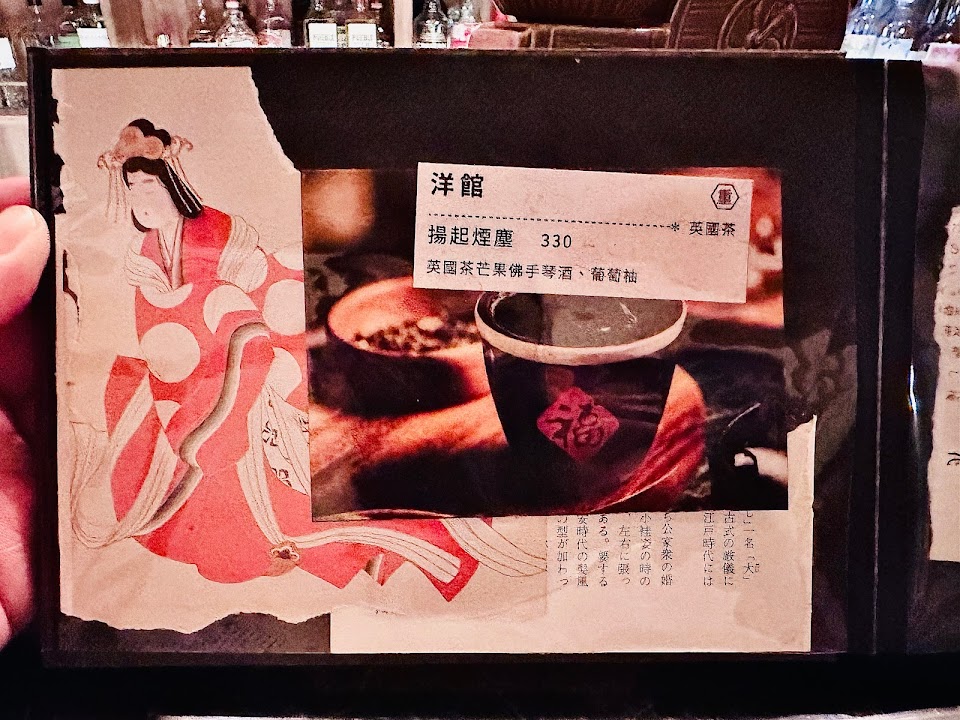 洋館
重
* 英國茶
揚起煙塵 330
英國茶芒果佛手琴酒、葡萄柚
福
一名「犬」
古式の嫁儀に
江戸時代には
公家衆の婚
小袿姿の時の
、左右に張っ
ある。要する
安時代の髪風
の型が加わっ